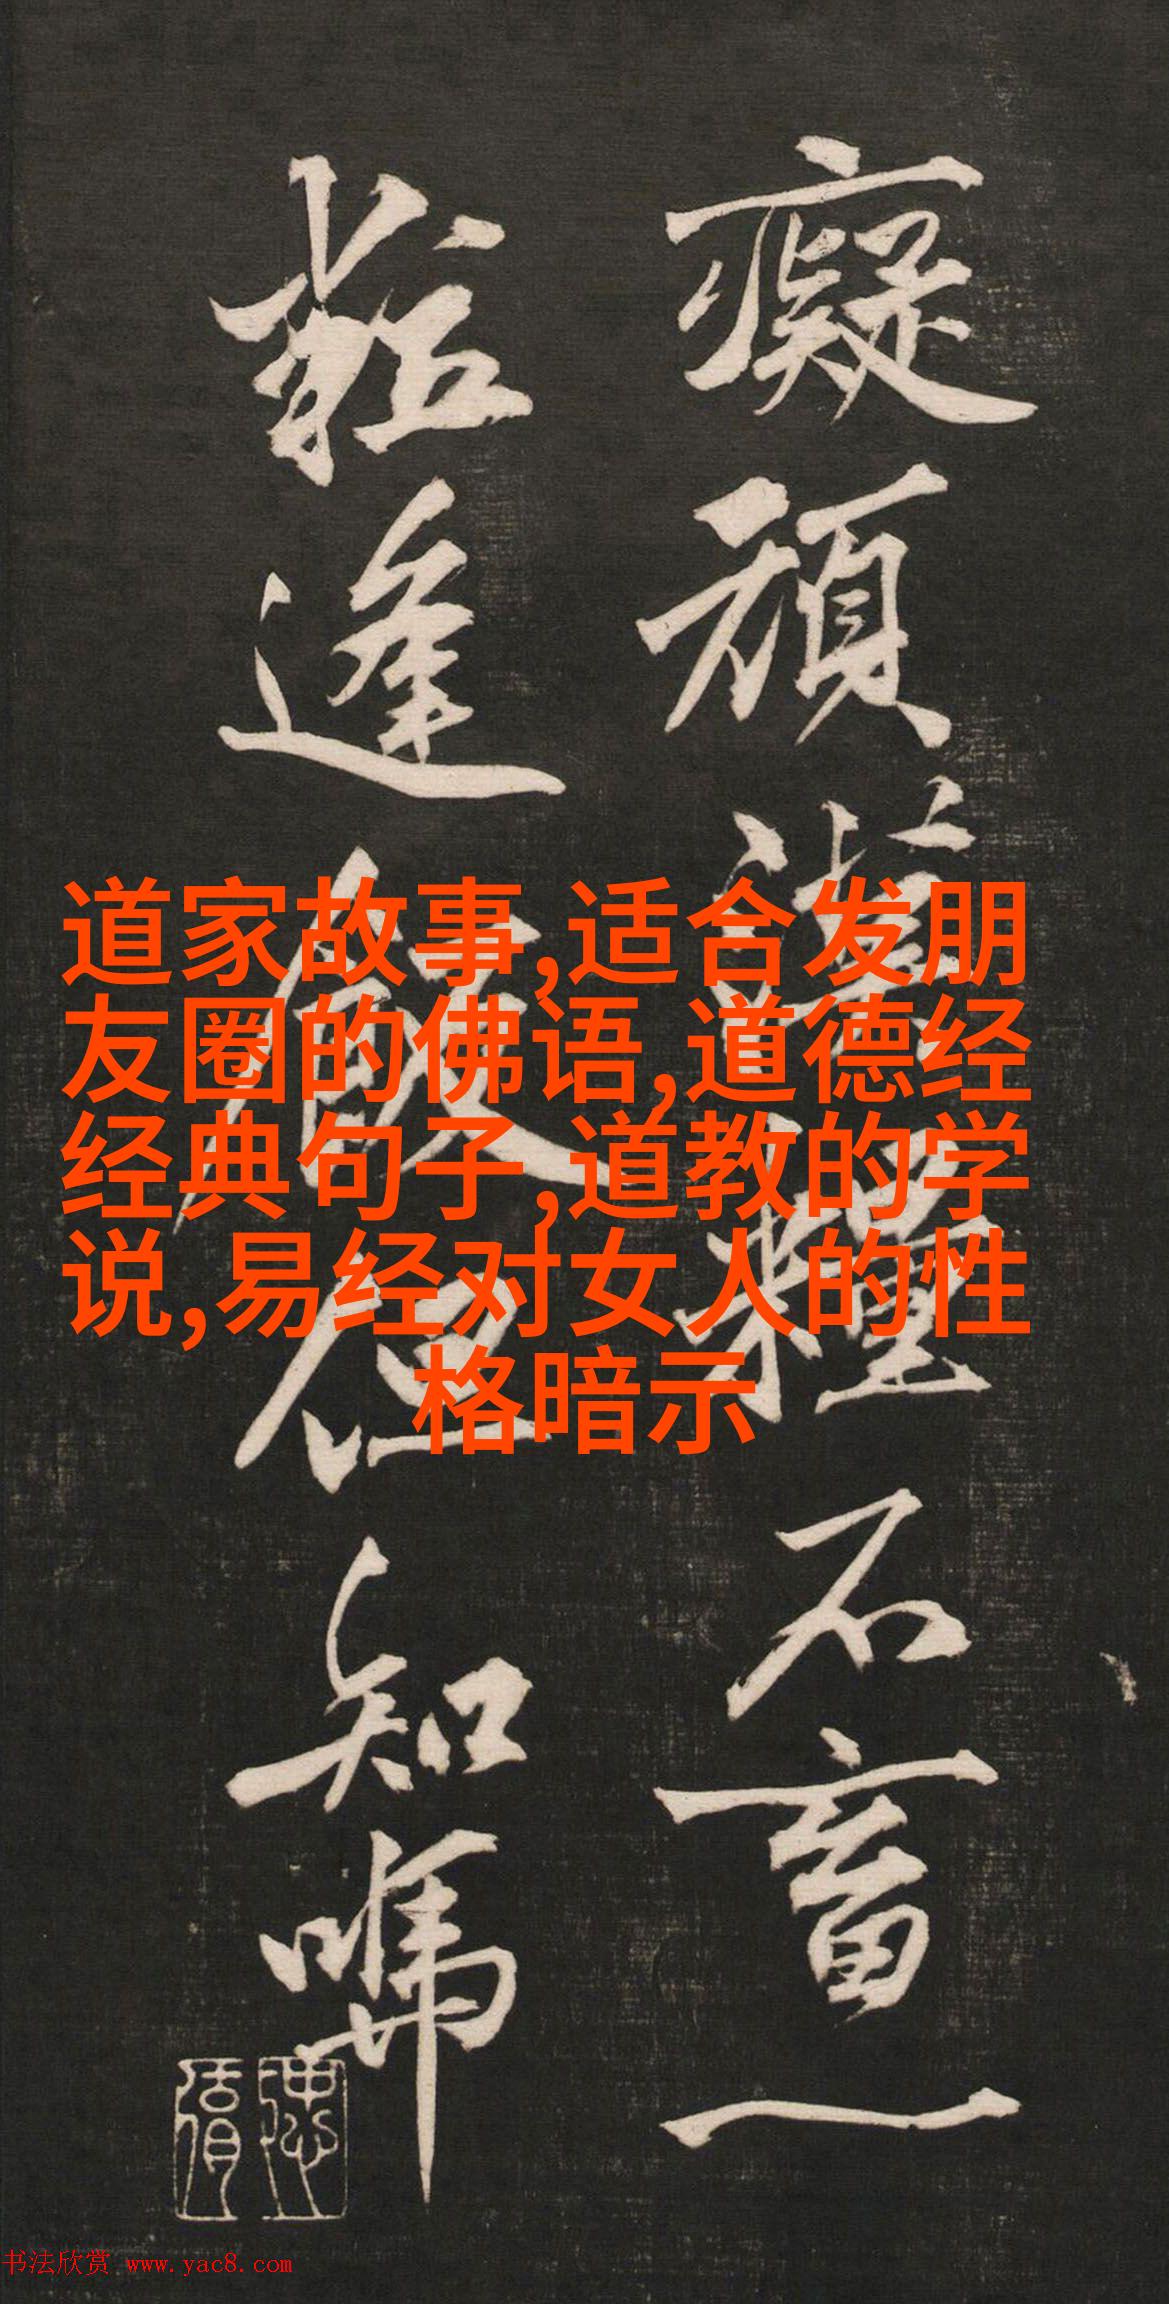 癡頑漢糧不畜一
粒逢飯但知
道家故事,适合发朋
友圈的佛语,道德经
经典句子,道教的学
说,易经对女人的性
格暗示
书法欣赏 www.yac8.com